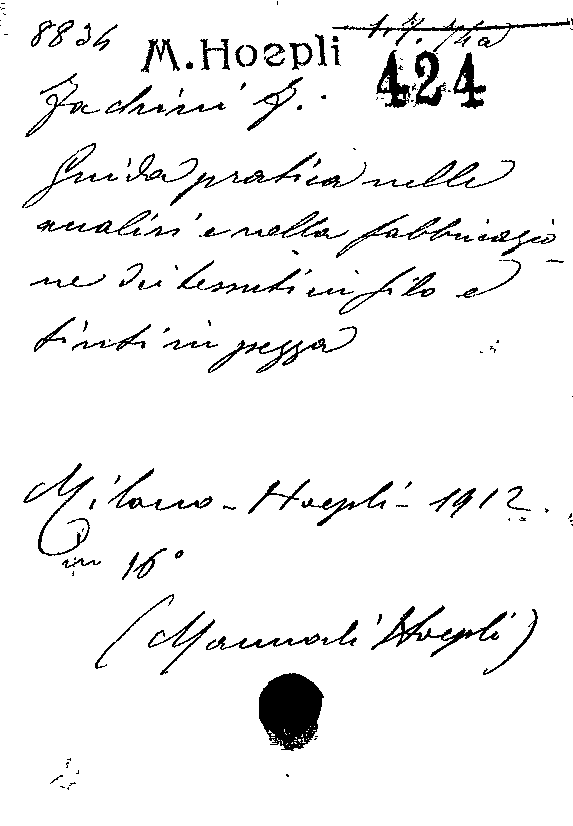 8834
M. Hoepli
424
Fachini F.
Guida pratica nelle
analisi e nella fabbricazio-
ne dei tessuti in filo e
tinti in pezza
Milano - Hoepli - 1912.
in 16°
(Manuali Hoepli)